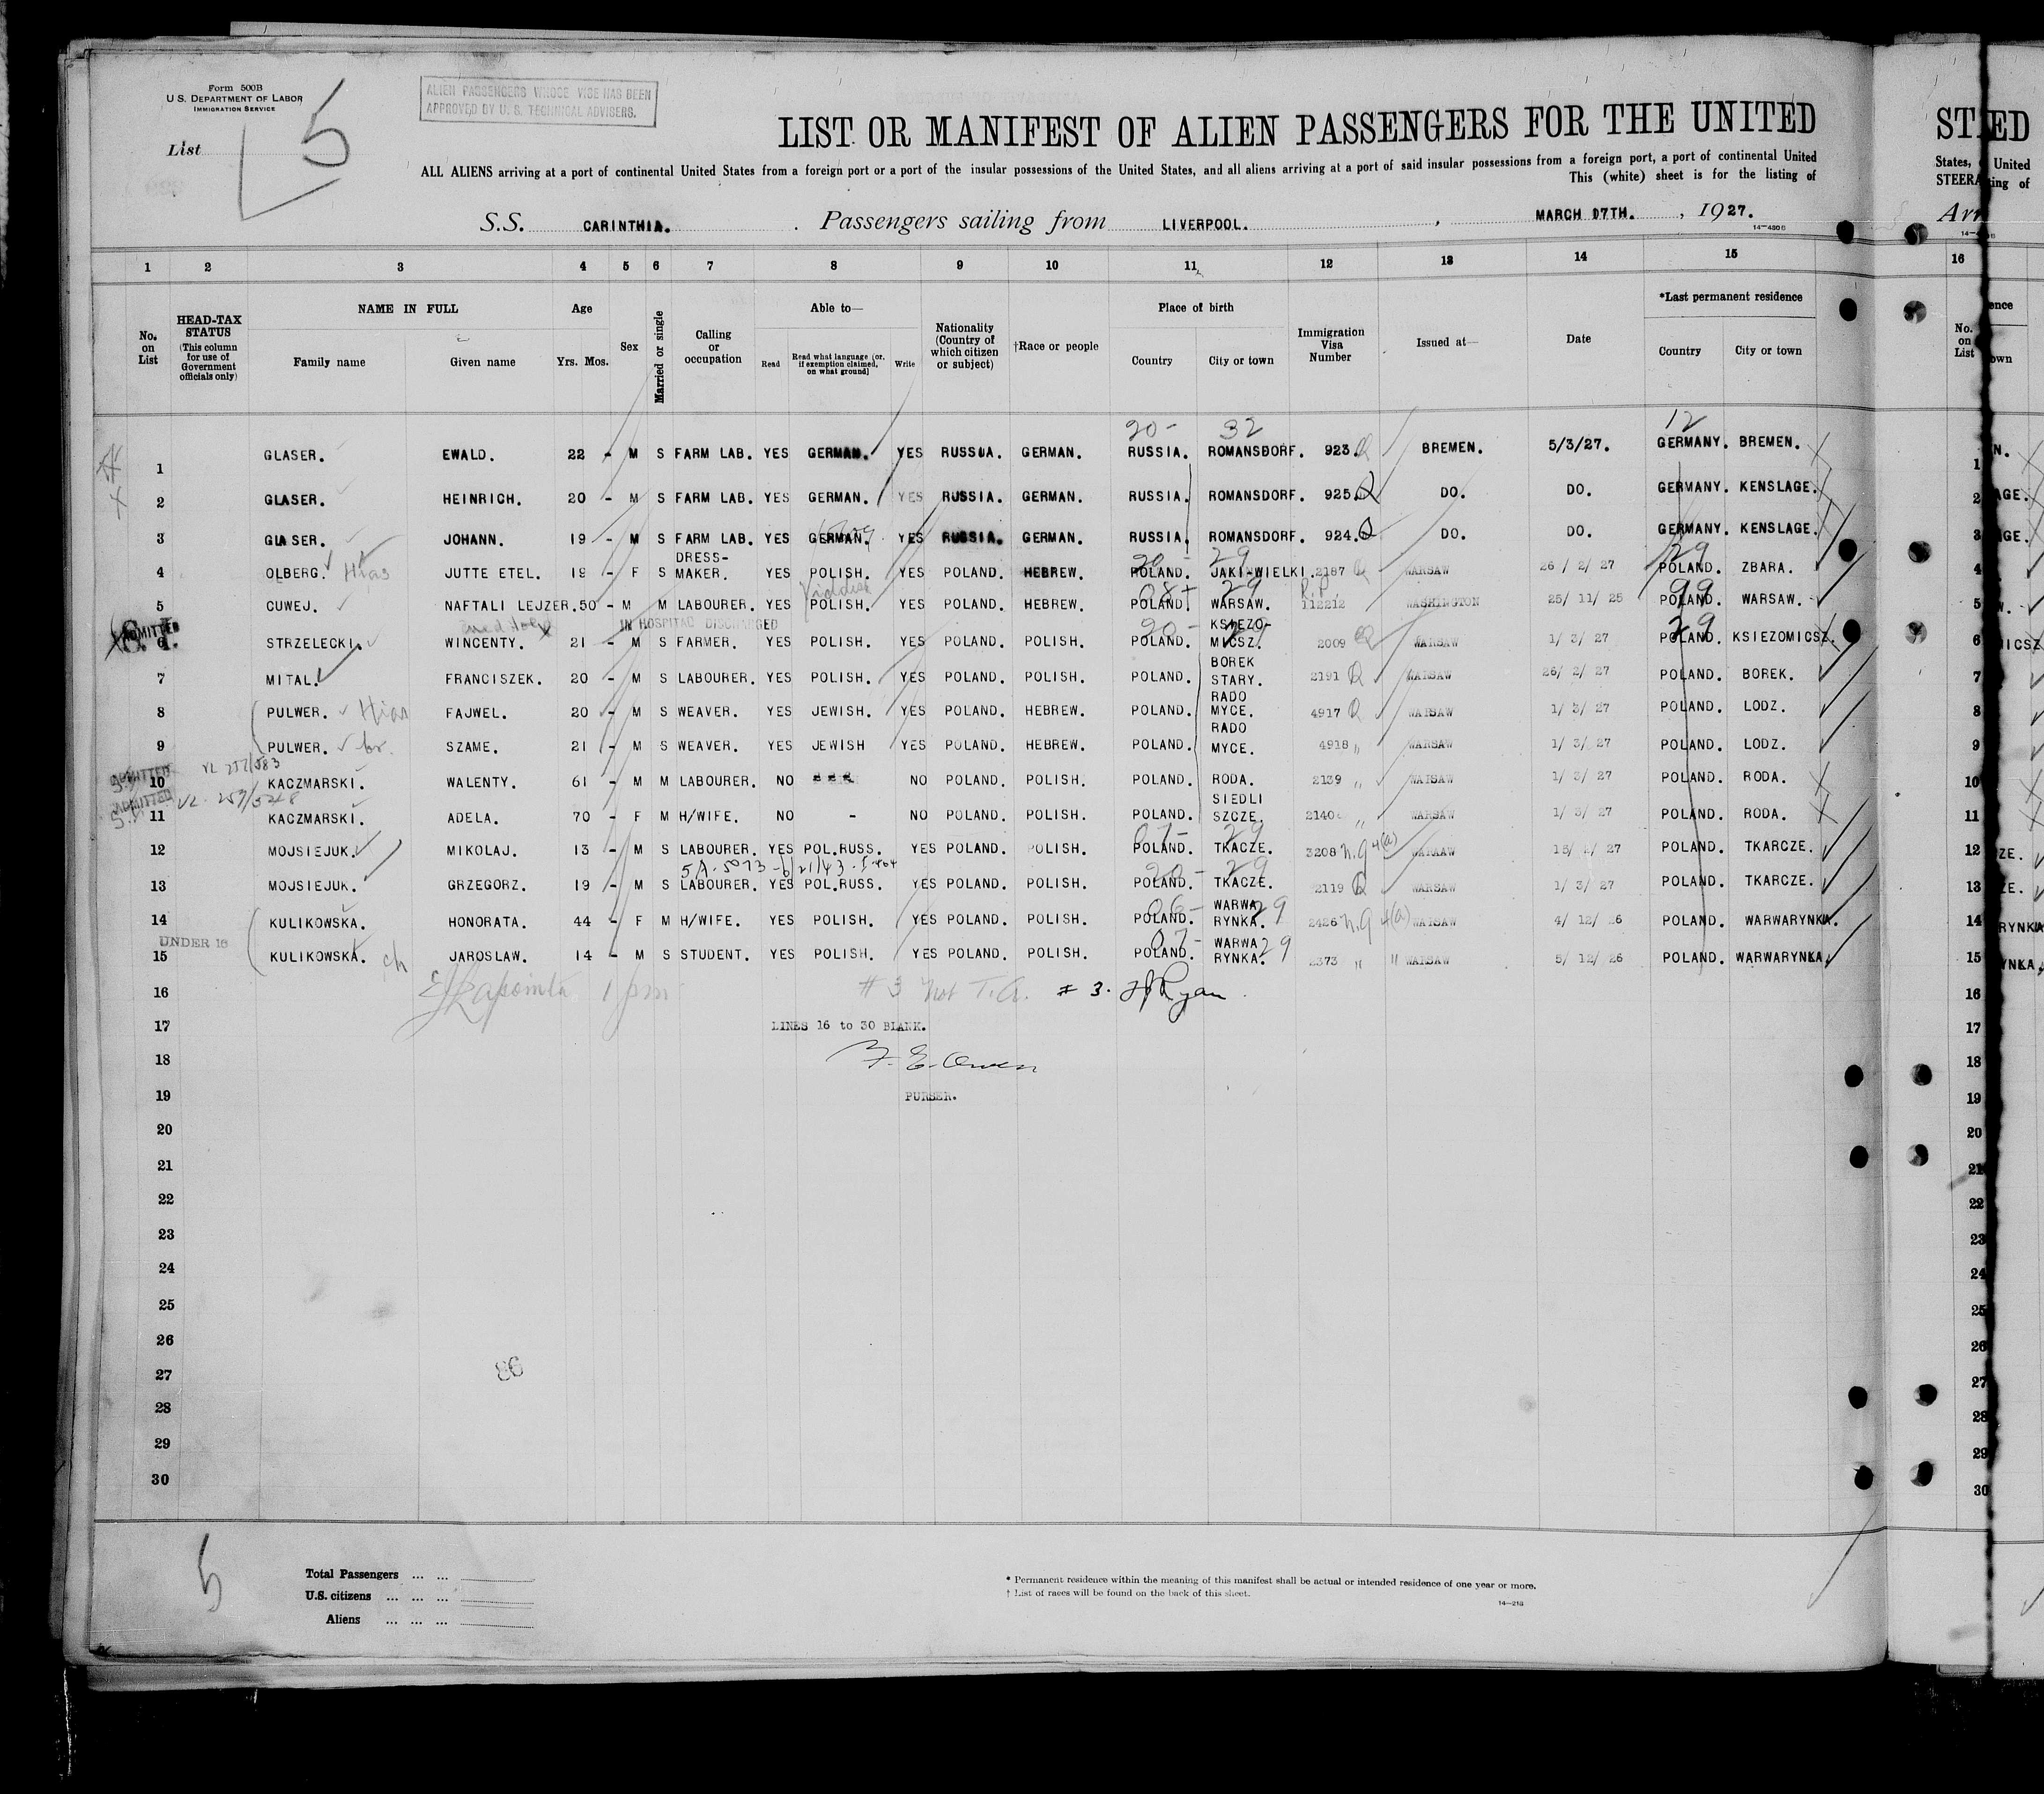 Form 500B
U. S. DEPARTMENT OF LABOR
IMMIGRATION SERVICE
ALIEN PASSENGERS WHOSE VISE HAS BEEN
APPROVED BY U. S. TECHNICAL ADVISERS.
List 5
LIST OR MANIFEST OF ALIEN PASSENGERS FOR THE UNITED
ALL ALIENS arriving at a port of continental United States from a foreign port or a port of the insular possessions of the United States, and all aliens arriving at a port of said insular possessions from a foreign port, a port of continental United
This (white) sheet is for the listing of
S.S. CARINTHIA. Passengers sailing from LIVERPOOL. , MARCH 07TH. , 1927.
14—480 B
1 2 3 4 5 6 7 8 9 10 11 12 13 14 15
No. on List
HEAD-TAX STATUS (This column for use of Government officials only)
NAME IN FULL
Family name Given name
Age
Yrs. Mos.
Sex
Married or single
Calling or occupation
Able to—
Read Read what language (or, if exemption claimed, on what ground) Write
Nationality (Country of which citizen or subject)
†Race or people
Place of birth
Country City or town
Immigration Visa Number
Issued at—
Date
*Last permanent residence
Country City or town
20- 32 12
1 GLASER. EWALD. 22 - M S FARM LAB. YES GERMAN. YES RUSSIA. GERMAN. RUSSIA. ROMANSDORF. 923. BREMEN. 5/3/27. GERMANY. BREMEN.
2 GLASER. HEINRICH. 20 - M S FARM LAB. YES GERMAN. YES RUSSIA. GERMAN. RUSSIA. ROMANSDORF. 925. DO. DO. GERMANY. KENSLAGE.
3 GLASER. JOHANN. 19 - M S FARM LAB. YES GERMAN. YES RUSSIA. GERMAN. RUSSIA. ROMANSDORF. 924. DO. DO. GERMANY. KENSLAGE.
20 - 29 29
4 OLBERG. Hias JUTTE ETEL. 19 - F S DRESS-MAKER. YES POLISH. YES POLAND. HEBREW. POLAND. JAKI-WIELKI. 2187 WARSAW 26/ 2/ 27 POLAND. ZBARA.
Yiddish 29
5 CUWEJ. NAFTALI LEJZER. 50 - M M LABOURER. YES POLISH. YES POLAND. HEBREW. POLAND. WARSAW. 112212 WASHINGTON 25/ 11/ 25 POLAND. WARSAW.
IN HOSPITAL DISCHARGED
ADMITTED
S.I.
20 - 29 29
6 STRZELECKI. WINCENTY. 21 - M S FARMER. YES POLISH. YES POLAND. POLISH. POLAND. KSIEZO-MICSZ. 2009 WARSAW 1/ 3/ 27 POLAND. KSIEZOMICSZ.
7 MITAL. FRANCISZEK. 20 - M S LABOURER. YES POLISH. YES POLAND. POLISH. POLAND. BOREK STARY. 2191 WARSAW 26/ 2/ 27 POLAND. BOREK.
8 PULWER. Hias FAJWEL. 20 - M S WEAVER. YES JEWISH. YES POLAND. HEBREW. POLAND. RADO MYCE. 4917 WARSAW 1/ 3/ 27 POLAND. LODZ.
9 PULWER. br. SZAME. 21 - M S WEAVER. YES JEWISH YES POLAND. HEBREW. POLAND. RADO MYCE. 4918 " WARSAW 1/ 3/ 27 POLAND. LODZ.
ADMITTED
10 KACZMARSKI. WALENTY. 61 - M M LABOURER. NO NO POLAND. POLISH. POLAND. RODA. 2139 " WARSAW 1/ 3/ 27 POLAND. RODA.
ADMITTED
11 KACZMARSKI. ADELA. 70 - F M H/WIFE. NO - NO POLAND. POLISH. POLAND. SIEDLI SZCZE. 2140 " WARSAW 1/ 3/ 27 POLAND. RODA.
07- 29
12 MOJSIEJUK. MIKOLAJ. 13 - M S LABOURER. YES POL.RUSS. YES POLAND. POLISH. POLAND. TKACZE. 3208 n.q 4(a) WARSAW 15/ 2/ 27 POLAND. TKARCZE.
20 - 29
13 MOJSIEJUK. GRZEGORZ. 19 - M S LABOURER. YES POL.RUSS. YES POLAND. POLISH. POLAND. TKACZE. 2119 WARSAW 1/ 3/ 27 POLAND. TKARCZE.
06- 29
14 KULIKOWSKA. HONORATA. 44 - F M H/WIFE. YES POLISH. YES POLAND. POLISH. POLAND. WARWA RYNKA. 2426 n.q 4(a) WARSAW 4/ 12/ 26 POLAND. WARWARYNKA.
UNDER 16
07- 29
15 KULIKOWSKA. ch JAROSLAW. 14 - M S STUDENT. YES POLISH. YES POLAND. POLISH. POLAND. WARWA RYNKA. 2373 " " WARSAW 5/ 12/ 26 POLAND. WARWARYNKA.
16 1 pm #3 not T.A. # 3. Ryan
17 LINES 16 to 30 BLANK.
18 F. E. Owen
19 PURSER.
20
21
22
23
24
25
26
27
28
29
30
86
5
Total Passengers ... ...
U.S. citizens ... ... ...
Aliens ... ... ...
* Permanent residence within the meaning of this manifest shall be actual or intended residence of one year or more.
† List of races will be found on the back of this sheet.
14—218